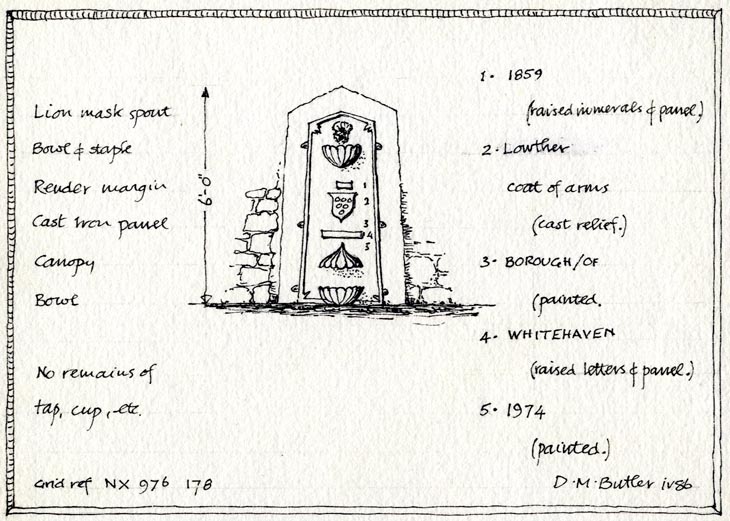 Lion mask spout
Bowl & staple
Render margin
Cast iron panel
Canopy
Bowl
No remains of
tap, cup, etc.
Grid ref NX 976 178
6'-0"
1
2
3
4
5
1. 1859
(raised numerals & panel.)
2. Lowther
coat of arms
(cast relief.)
3. BOROUGH/OF
(painted.
4. WHITEHAVEN
(raised letters & panel.)
5. 1974
(painted.)
D.M.Butler iv86